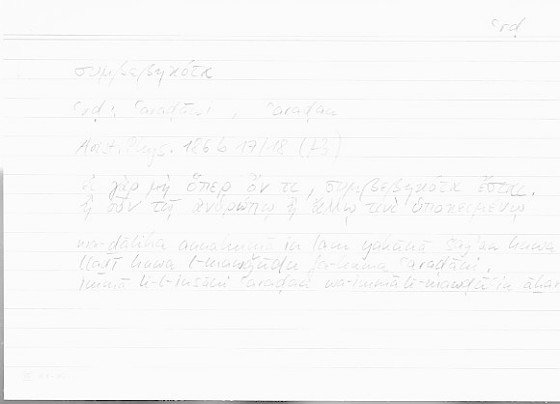 ʿrḍ
συμβεβηκότα
ʿrḍ: ʿaraḍāni, ʿaraḍan
Arist. Phys. 186 b 17/18 (A3)
εἰ γὰρ μὴ ὅπερ ὄν τι, συμβεβηκότα ἔσται
ἢ τῷ ἀνθρώπῳ ἢ ἄλλῳ τινὶ ὑποκειμένῳ
wa-ḏālika annahumā in lam yakūnā šayʾan huwa
llaḏī huwa l-mawǧūdu fa-humā ʿaraḍāni,
immā li-l-insāni ʿaraḍan wa-immā li-mawḍūʿin āḫar